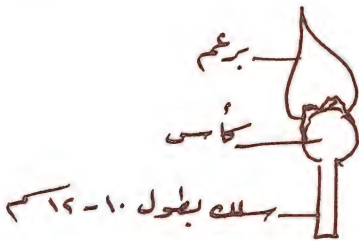 برعم
كأس
سلك بطول ١٠-١٢ سم